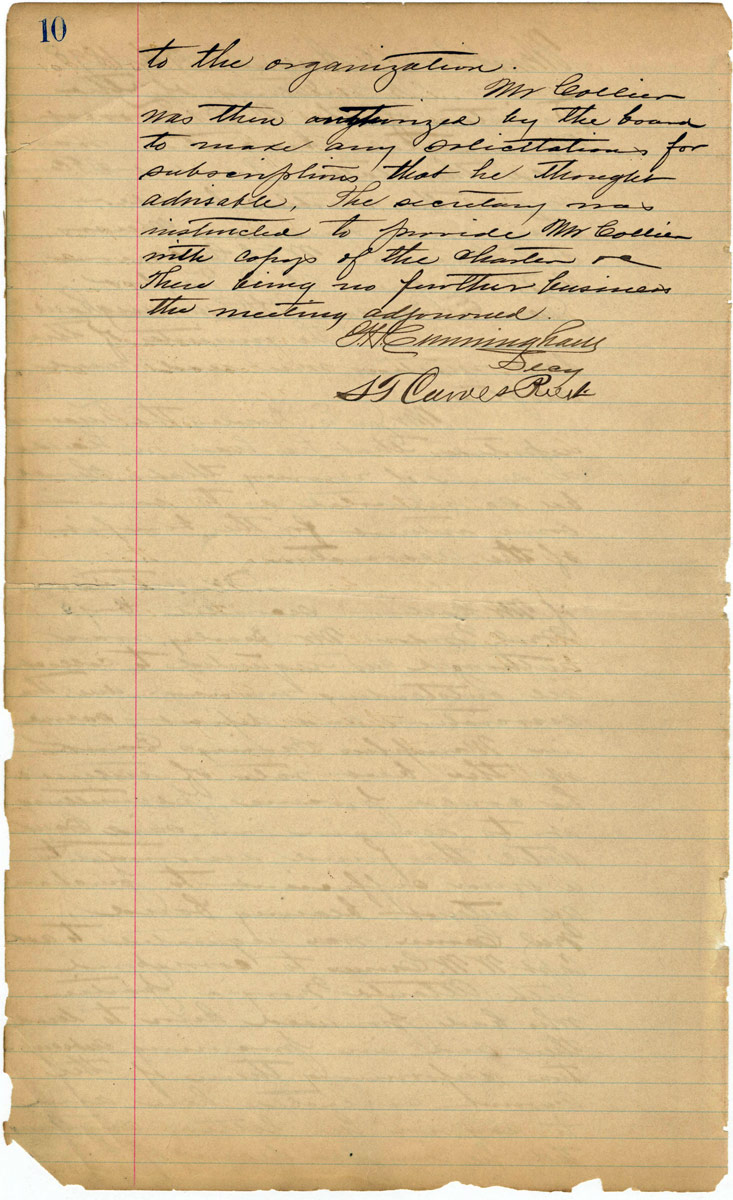 10
to the organization.
Mr Collier
was then authorized by the board
to make any solicitations for
subscriptions that he thought
advisable. The secretary was
instructed to provide Mr Collier
with copys of the charter &c
There being no further business
the meeting adjourned.
Cunningham
Secy
S T Carnes Prest